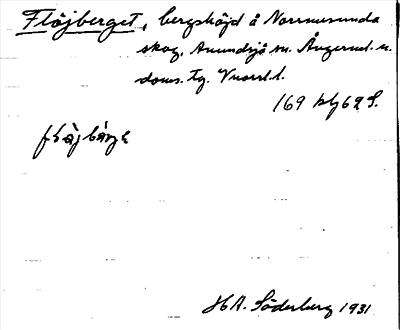 Flöjberget, bergshöjd å Norrmesunda
skog, Anundsjö sn. Ångerml. n.
doms. tg. Vnorrl. l.
169 kbj 62 S.
H.A. Söderberg 1931